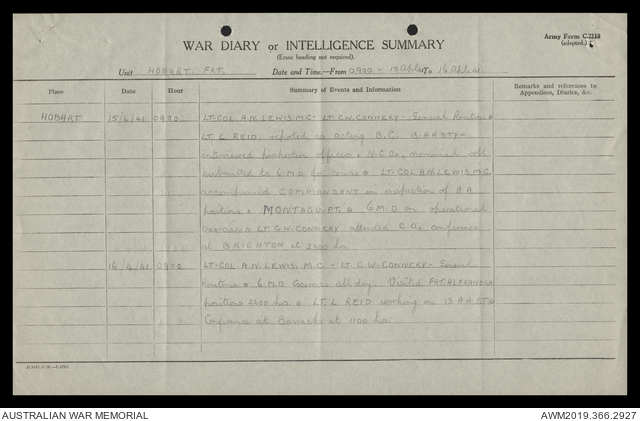 Army Form C.2118
(adapted.)
WAR DIARY or INTELLIGENCE SUMMARY
(Erase heading not required).
Unit HOBART. FRT. Date and Time—From 0900 - 15 Apl 41 To 16 Apl 41.
Place Date Hour Summary of Events and Information Remarks and references to Appendices, Diaries, &c.
HOBART 15/4/41 0900 LT-COL A.N. LEWIS. M.C. - LT. C.W. CONNERY - General Routine
LT. L. REID. reported as acting B.C. 13 AA BTY -
interviewed prospective officers & N.C.Os, nominal roll
submitted to 6 M.D. for course LT-COL A.N. LEWIS. M.C.
accompanied COMMANDANT on inspection of A.A
positions MONTAGU-PT. 6 M.D on operational
exercises LT. C.W. CONNERY attended C.Os conference
at BRIGHTON at 2300 hrs
16/4/41 0900 LT-COL A.N. LEWIS. M.C - LT C.W. CONNERY - General
Routine 6 PLD Exercise all day. Visited FRT. ALEXANDRA
positions 2200 hrs. LT. L. REID working on 13 A.A BTY
Conference at Barracks at 1100 hrs.
AUSTRALIAN WAR MEMORIAL AWM2019.366.2927